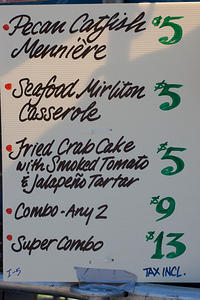 • Pecan Catfish $5
Mennière
• Seafood Mirliton $5
Casserole
• Fried Crab Cake $5
with Smoked Tomato
& Jalapeño Tartar
• Combo-Any 2 $9
• Super Combo $13
I-5 TAX INCL.